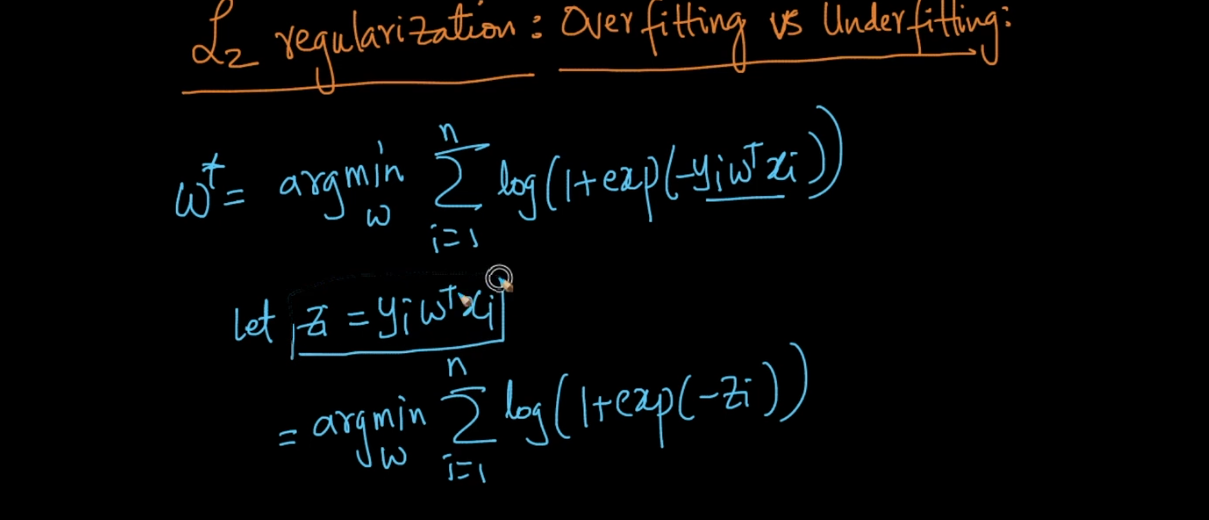 L₂ regularization : Overfitting vs Underfitting:
w* = argmin_w Σ_{i=1}^{n} log(1+exp(-yᵢwᵀxᵢ))
Let zᵢ = yᵢwᵀxᵢ
= argmin_w Σ_{i=1}^{n} log(1+exp(-zᵢ))